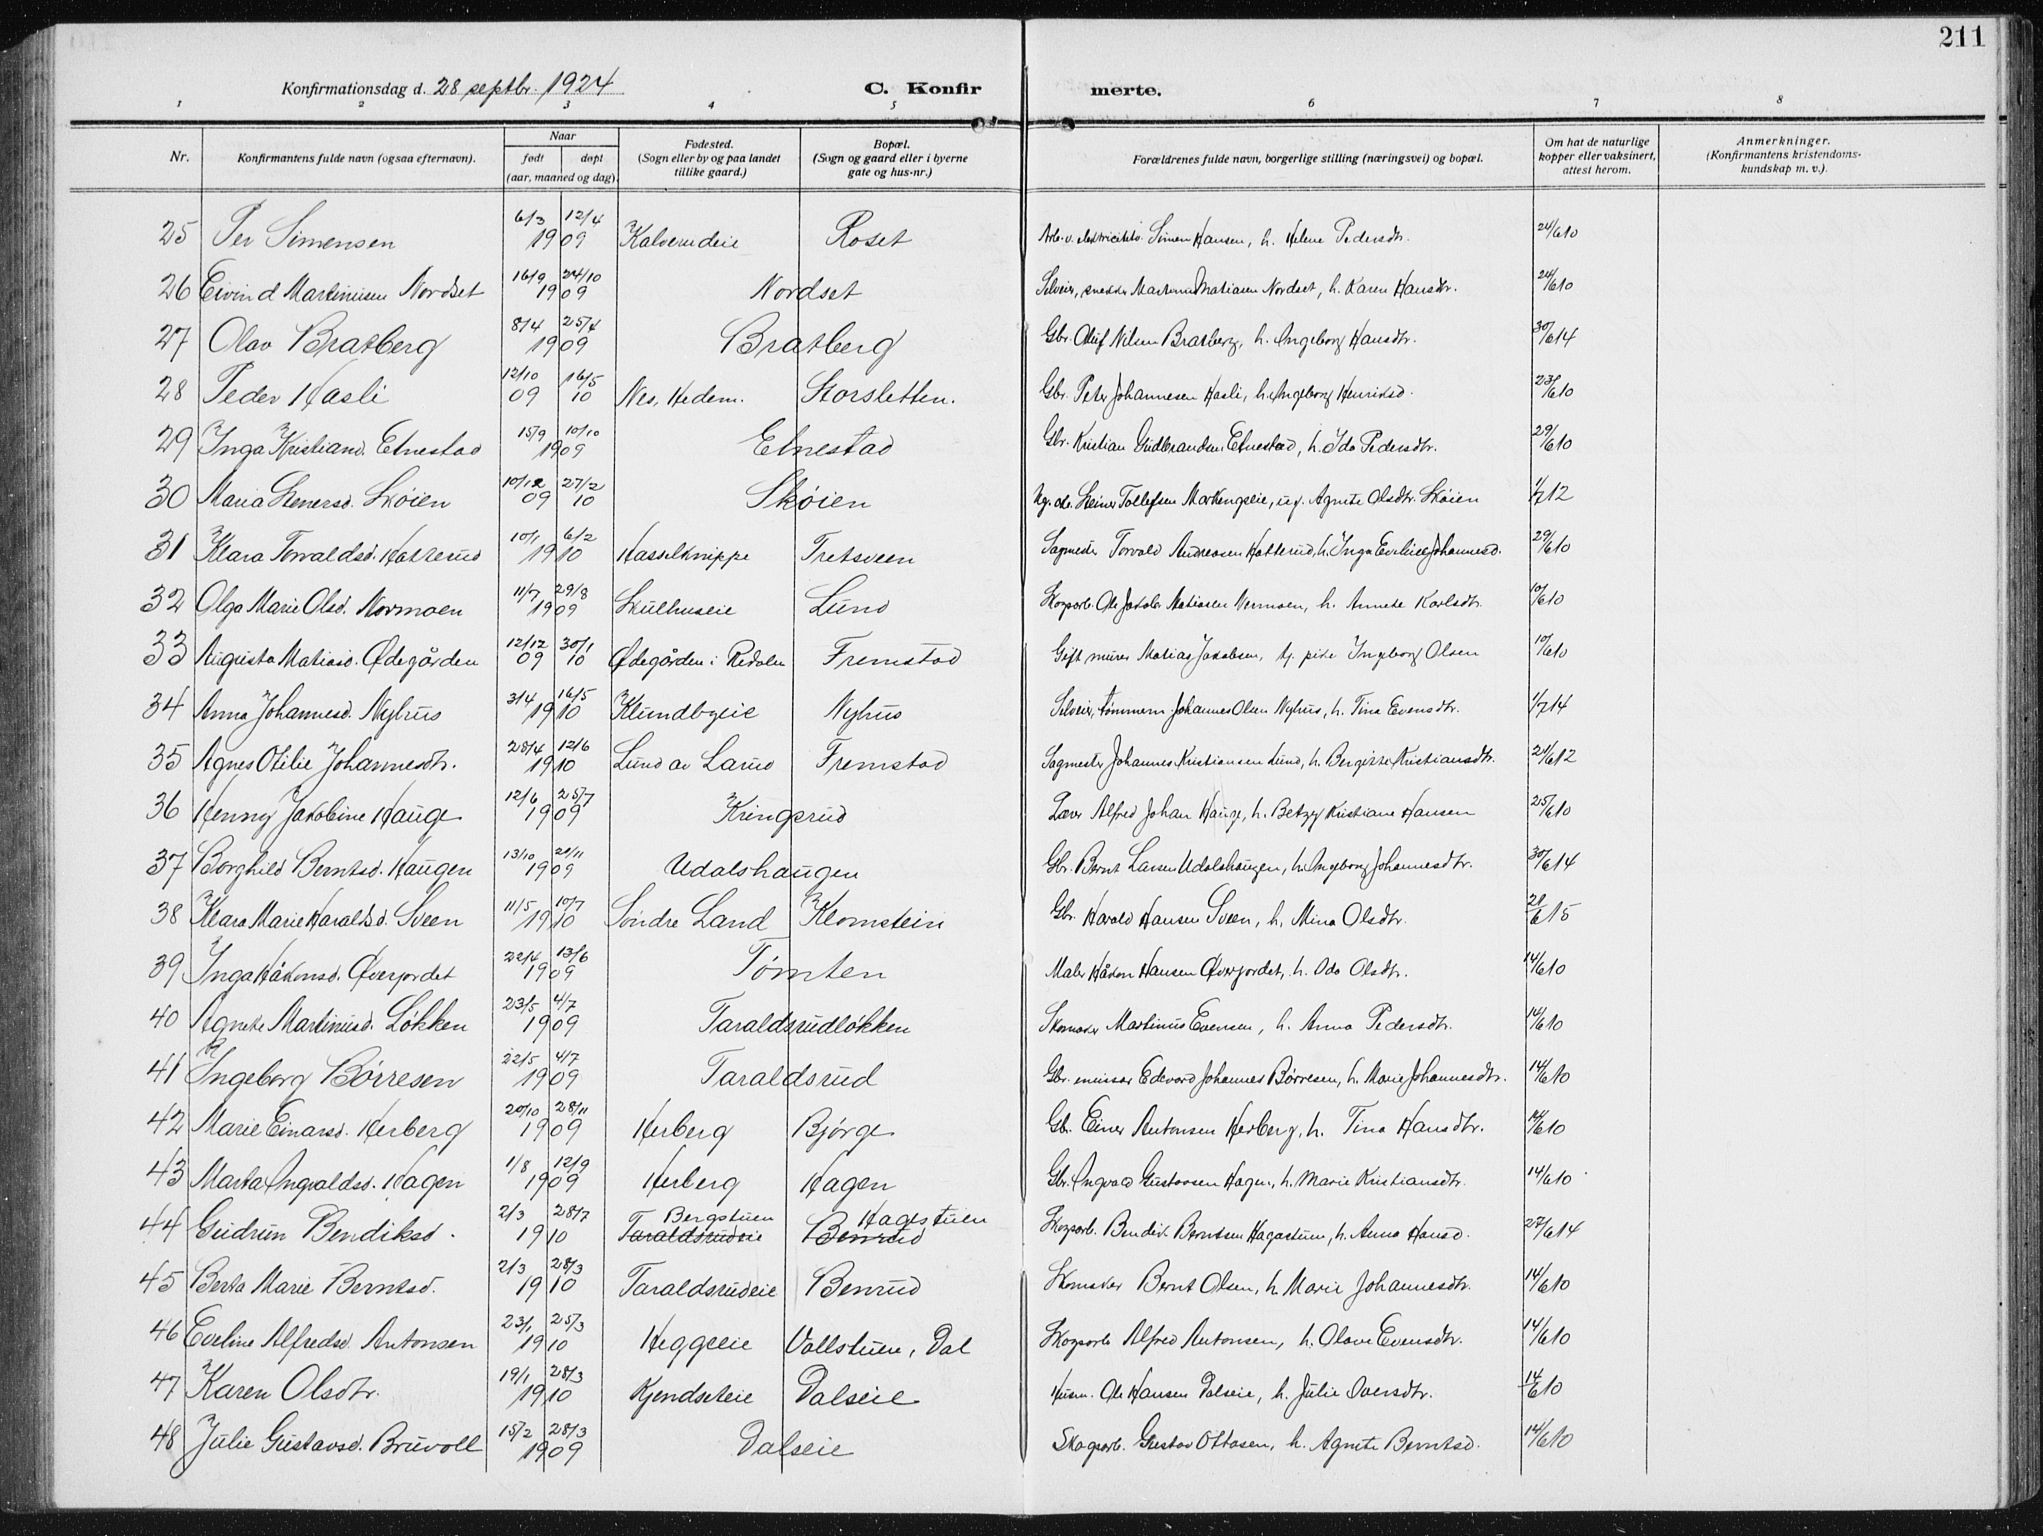 211
Konfirmationsdag d. 28 septbr. 1924 C. Konfirmerte.
1 2 3 4 5 6 7 8
Nr. Konfirmantens fulde navn (ogsaa efternavn). Naar født døpt (aar, maaned og dag) Fødested. (Sogn eller by og paa landet tillike gaard.) Bopæl. (Sogn og gaard eller i byerne gate og hus-nr.) Forældrenes fulde navn, borgerlige stilling (næringsvei) og bopæl. Om hat de naturlige kopper eller vaksinert, attest herom. Anmerkninger. (Konfirmantens kristendoms-kundskap m. v.)
25 Per Simensen 6/3 12/4 1909 Kalverudeie Roset Arb. v. elektricitetsv. Simen Hansen, h. Helene Pedersdtr. 24/6 10
26 Eivind Martiniusen Nordset 16/9 24/10 1909 Nordset Selveier, snekker Martinius Matiasen Nordset, h. Karen Hansdtr. 24/6 10
27 Olav Bratberg 8/4 25/4 1909 Bratberg Gbr. Oluf Nilsen Bratberg, h. Ingeborg Hansdtr. 30/6 14
28 Peder Hasli 12/10 09 16/5 10 Nes, Hedem. Storsletten. Gbr. Peter Johannesen Hasli, h. Ingeborg Henriksd. 23/6 10
29 Inga Kristiansd. Elnestad 15/9 10/10 1909 Elnestad Gbr. Kristian Gudbrandsen Elnestad, h. Ida Pedersdtr. 29/6 10
30 Maria Stenersd. Skøien 10/12 09 27/2 10 Skøien Ug. arb. Steiner Tollefsen Markengseie, ug. Agnete Olsdtr. Skøien 1/7 12
31 Klara Torvaldsd. Hatterud 10/1 6/2 1910 Hasselknippe Tretsveen Sagmester Torvald Andreasen Hatterud, h. Inga Eveline Johannesd. 29/6 10
32 Olga Marie Olsd. Normoen 11/7 29/8 1909 Skulhuseie Lund Skogsarb. Ole Jakob Matiasen Normoen, h. Annete Karlsdtr. 10/6 10
33 Augusta Matiasd. Ødegården 12/12 09 30/1 10 Ødegården i Redalen Fremstad Gift murer Matias Jakobsen, ug. pike Ingeborg Olsen 10/6 10
34 Anna Johannesd. Nyhus 3/4 16/5 1910 Klundbyeie Nyhus Selveier, tømmerm. Johannes Olsen Nyhus, h. Tina Evensdtr. 1/7 14
35 Agnes Otilie Johannesdtr. 28/4 12/6 1910 Lund av Larud Fremstad Sagmester Johannes Kristiansen Lund, h. Bergitte Kristiansdtr. 24/6 12
36 Henny Jakobine Hauge 12/6 25/7 1909 Kringsrud Lærer Alfred Johan Hauge, h. Betzy Kristiane Hansen 25/6 10
37 Borghild Berntsd. Haugen 13/10 21/11 1909 Udalshaugen Gbr. Bernt Larsen Udalshaugen, h. Ingeborg Johannesdtr. 30/6 14
38 Klara Marie Haraldsd. Sveen 11/5 10/7 1910 Søndre Land Klomstein Gbr. Harald Hansen Sveen, h. Mina Olsdtr. 21/6 15
39 Inga Håkonsd. Øverjordet 22/4 13/6 1909 Tømten Maler Håkon Hansen Øverjordet, h. Oda Olsdtr. 14/6 10
40 Agnete Martinusd. Løkken 23/5 4/7 1909 Taraldsrudløkken Skomaker Martinus Evensen, h. Anna Pedersdtr. 14/6 10
41 Ingeborg Børresen 22/5 4/7 1909 Taraldsrud Gbr. emissær Edevard Johannes Børresen, h. Marie Johannesdtr. 14/6 10
42 Marie Einarsd. Herberg 20/10 28/11 1909 Herberg Bjørge Gb. Einer Antonsen Herberg, h. Tina Hansdtr. 14/6 10
43 Marta Ingvaldsd. Hagen 1/8 12/9 1909 Herberg Hagen Gbr. Ingvald Gustavsen Hagen, h. Marie Kristiansdtr. 14/6 10
44 Gudrun Bendiksd. 2/3 28/7 1910 Bergstuen Taraldsrudeie Hagestuen Benrud Skogsarb. Bendik Berntsen Hagastuen, h. Anna Hansd. 27/6 14
45 Berta Marie Berntsd. 2/3 28/3 1910 Taraldsrudeie Benrud Skomaker Bernt Olsen, h. Marie Johannesdtr. 14/6 10
46 Eveline Alfredsd. Antonsen 23/1 25/3 1910 Heggeeie Vollstuen, Dal Skogsarb. Alfred Antonsen, h. Olave Evensdtr. 14/6 10
47 Karen Olsdtr. 19/1 28/3 1910 Kjendseteie Dalseie Husm. Ole Hansen Dalseie, h. Julie Iversdtr. 14/6 10
48 Julie Gustavsd. Bruvoll 15/2 28/3 1909 Dalseie Skogsarb. Gustav Ottosen, h. Agnete Berntsd. 14/6 10